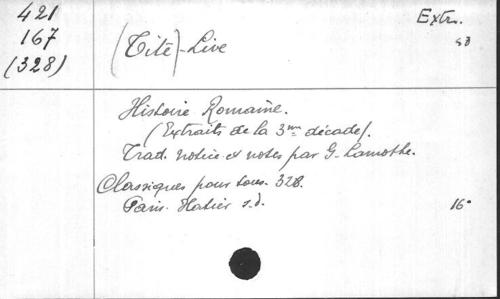 421
167
(328)
(Tite)-Live
Extr.
Histoire Romaine.
(Extraits de la 3me décade).
Trad. notice et notes par G. Lamothe.
Classiques pour tous. 328.
Paris. Hatier s.d.
16°